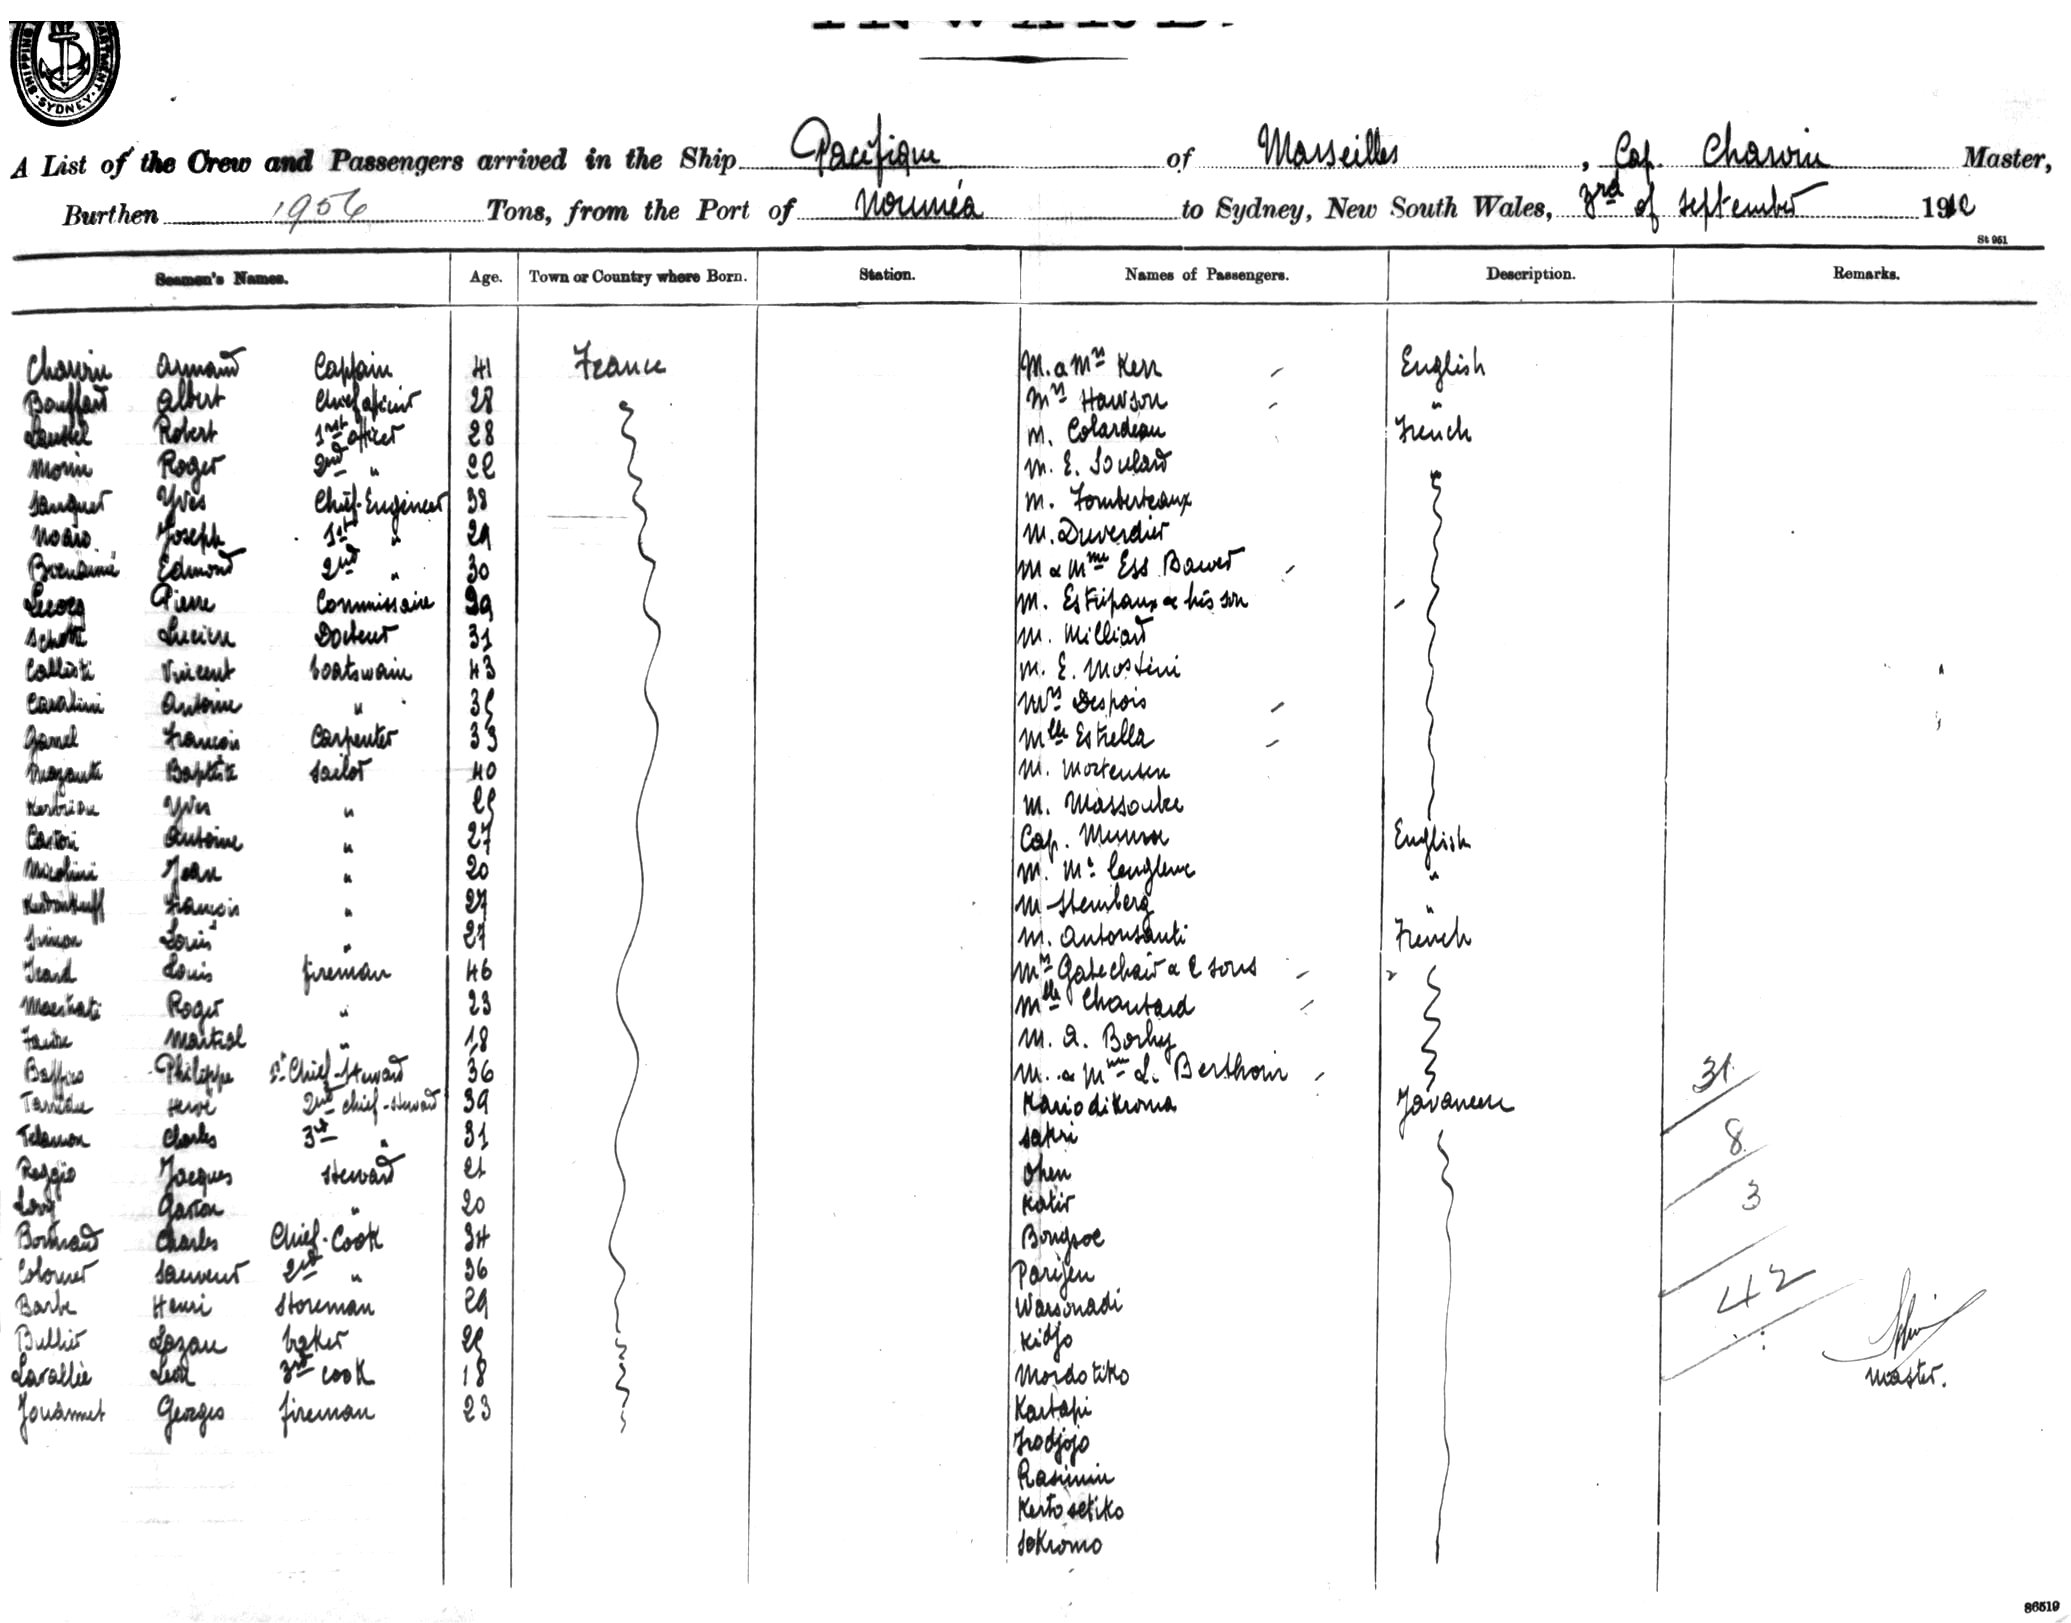 SHIPPING DEPARTMENT SYDNEY
INWARD.
A List of the Crew and Passengers arrived in the Ship Pacifique of Marseilles, Cap. Chauvin Master,
Burthen 1956 Tons, from the Port of Nouméa to Sydney, New South Wales, 3rd of September 19
St 951
Seamen's Names. Age. Town or Country where Born. Station. Names of Passengers. Description. Remarks.
Chauvin Armand Captain 41 France M. & Mrs Kerr English
Bouffard Albert Chief officer 28 Mrs Hawson "
Robert 1rst officer 28 M. Colardeau French
Morin Roger 2nd " M. E. Soulard
Yves Chief-Engineer 38 M. Fomberteaux
Joseph 1st " 29 M. Duverdier
Edmond 2nd " 30 M & Mme Ess Bawer
Lecocq Pierre Commissaire 39 M. Estripaux & his son
Schott Lucien Docteur 31 M. Milliard
Callisti Vincent boatswain 43 M. E. Mostini
Cavalini Antoine " Mrs Despois
Gamel François Carpenter 33 Mlle Estrella
Baptiste sailor 40 M. Mortensen
Yves " M. Massoubre
Castori Antoine " 27 Cap. Munro English
Nicolini Jean " 20 M. "
François " 27 M Stemberg "
Simon Louis " 27 M. Antonsanti French
Icard Louis fireman 46 Mrs Gatechair & 2 sons
Maestrati Roger " 23 Mlle Chautard
Faure Martial " 18 M. A. Borhy
Philippe Chief-Steward 36 M. & Mme L. Berthoin 31
Hervé 2nd chief-steward 39 Kariodikromo Javanese
Telamon Charles 3rd " 31 Sakri 8
Reggio Jacques Steward 21 Open 3
Levy Gaston " 20 Katir
Bertrand Charles Chief-Cook 34 Bongsoe
Colomer Sauveur 2nd " 36 Parijen 42
Barbe Henri Storeman 29 Warsonadi
Bullier Lazare baker Kidjo
Lavallée Léon 3rd cook 18 Mordotiko Master.
Jouannet Georges fireman 23 Kartapi
Irodjojo
Rasimin
Kertosetiko
Sokromo
86519